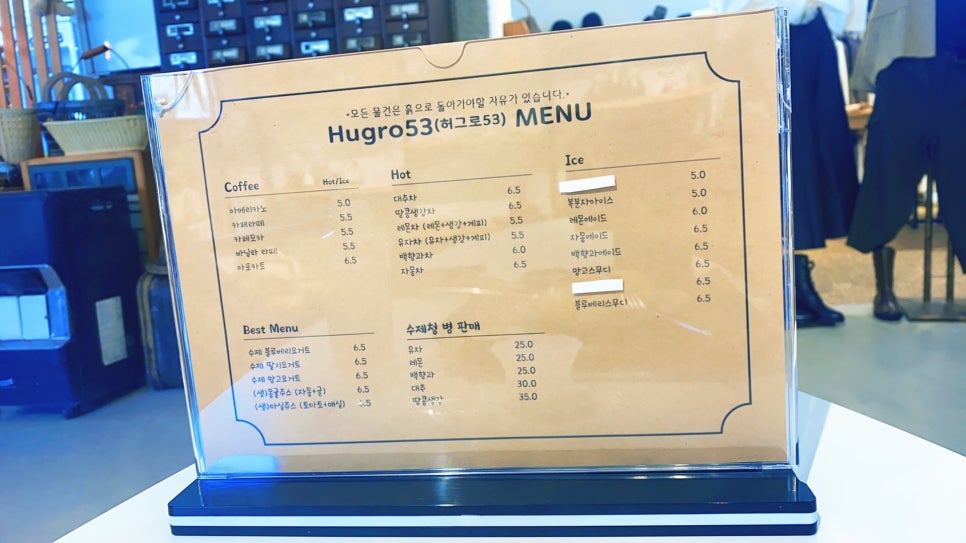 *모든 물건은 흙으로 돌아가야할 자유가 있습니다.*
Hugro53(허그로53) MENU
Coffee Hot/Ice
아메리카노 5.0
카페라떼 5.5
카페모카 5.5
바닐라 라떼 5.5
아포카토 6.5
Hot
대추차 6.5
땅콩생강차 6.5
레몬차 (레몬+생강+계피) 5.5
유자차 (유자+생강+계피) 5.5
백향과차 6.0
자몽차 6.5
Ice
5.0
복분자아이스 5.0
레몬에이드 6.0
자몽에이드 6.5
백향과에이드 6.5
망고스무디 6.5
6.5
블루베리스무디 6.5
Best Menu
수제 블루베리요거트 6.5
수제 딸기요거트 6.5
수제 망고요거트 6.5
(생)몽귤주스 (자몽+귤) 6.5
(생)마실주스 (토마토+매실) 6.5
수제청 병 판매
유자 25.0
레몬 25.0
백향과 25.0
대추 30.0
땅콩생강 35.0